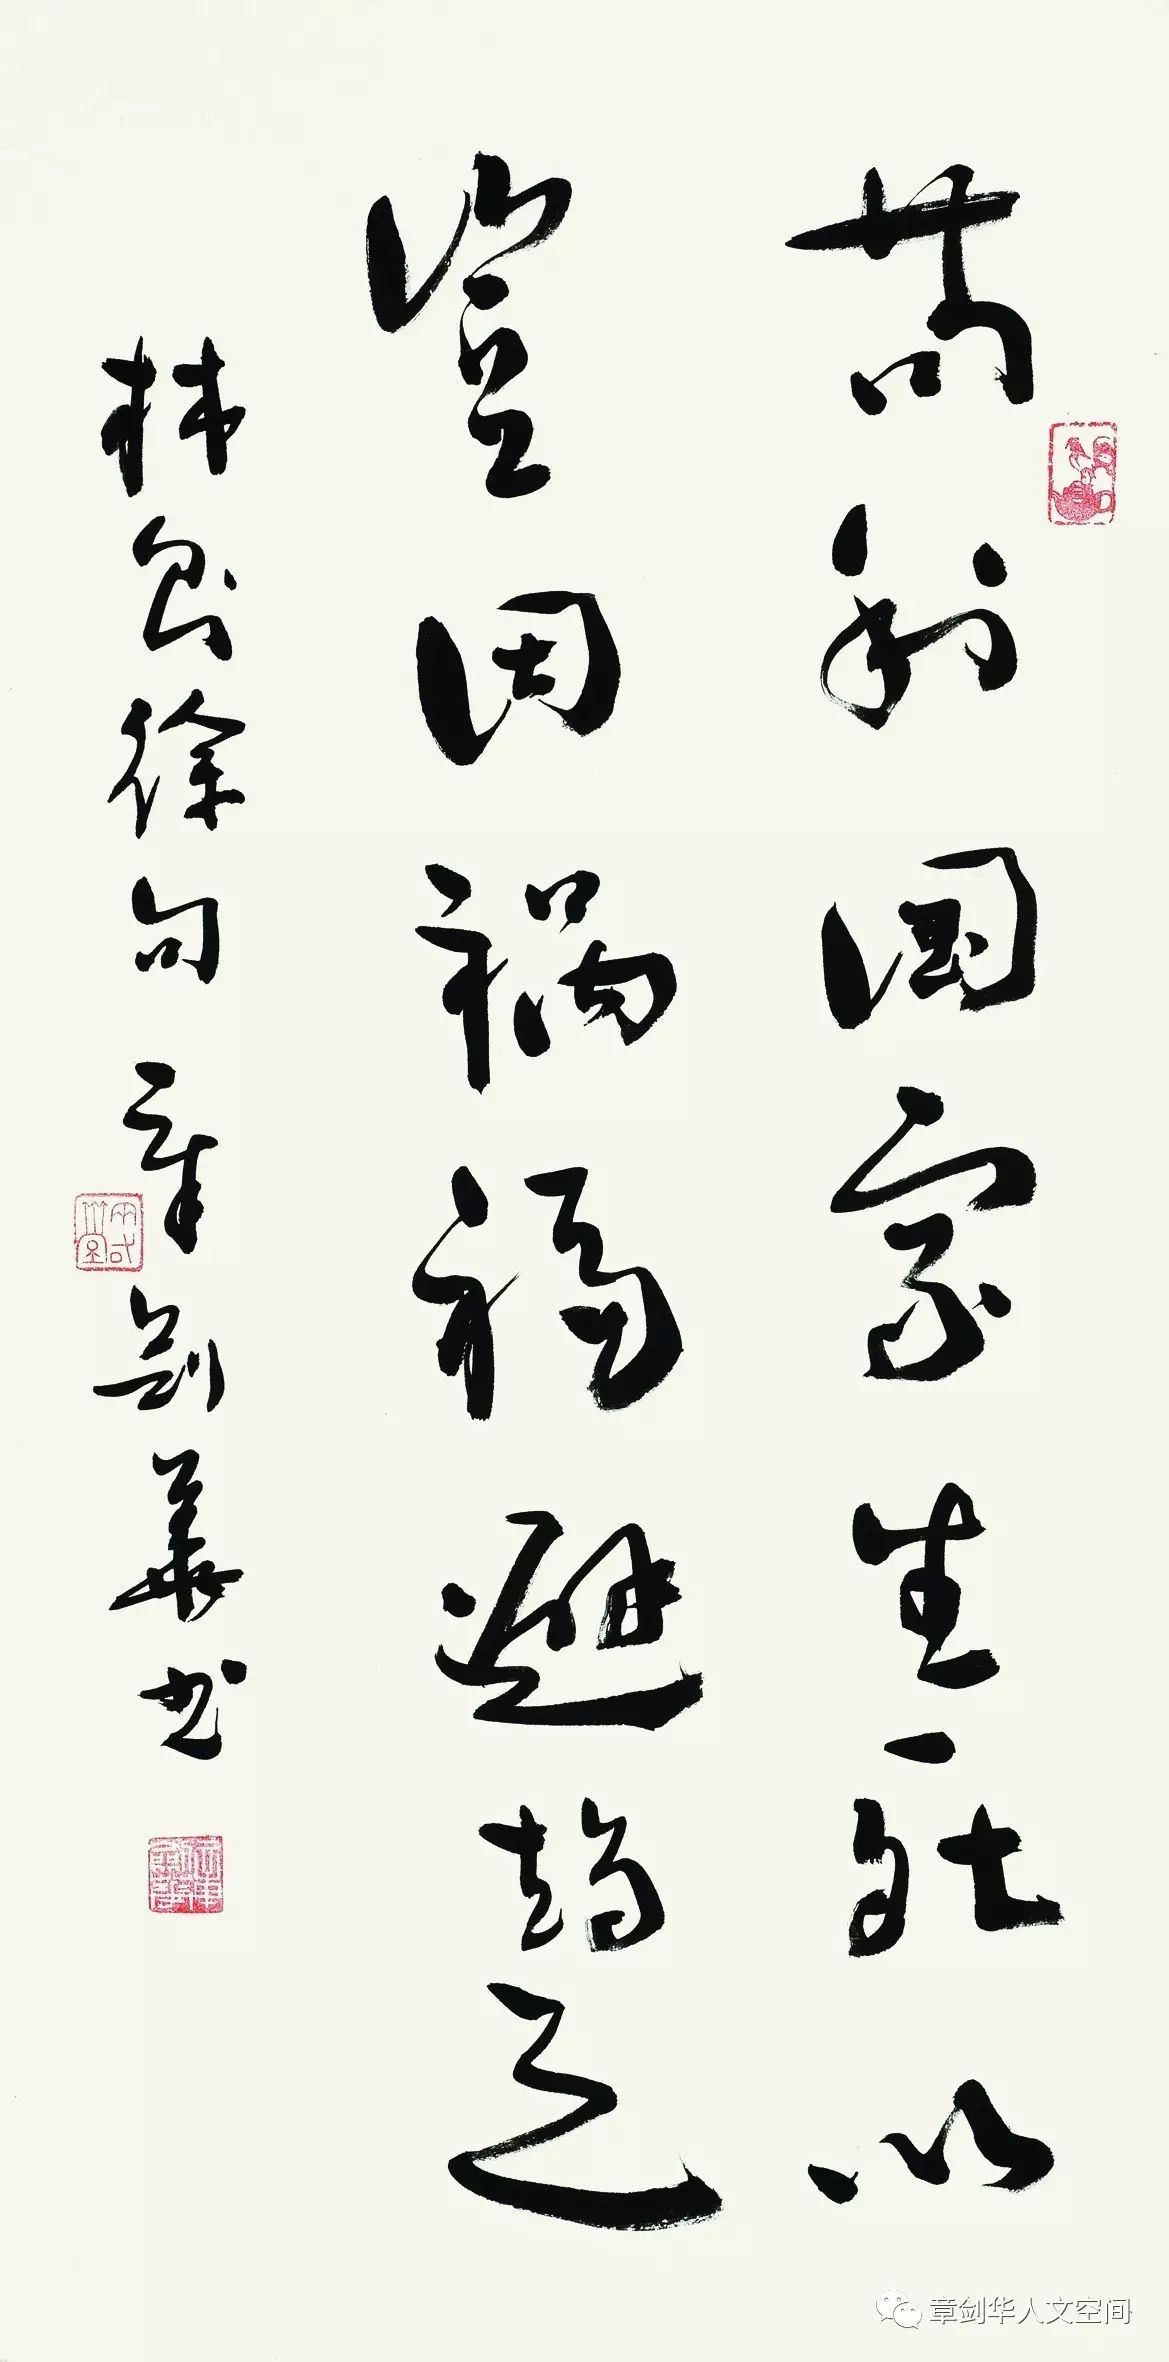 苟利国家生死以
岂因祸福避趋之
林则徐句 章剑华书
章剑华人文空间